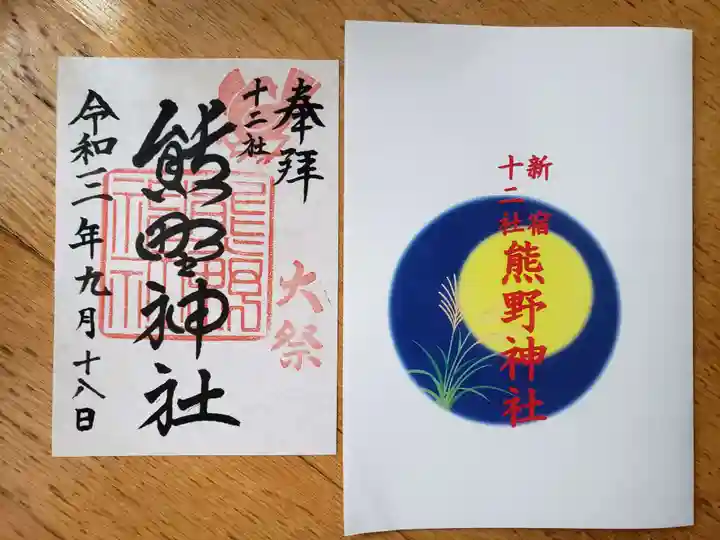 奉拝
大祭
十二社
熊野神社
熊野
神社
令和三年九月十八日
新宿
十二社
熊野神社